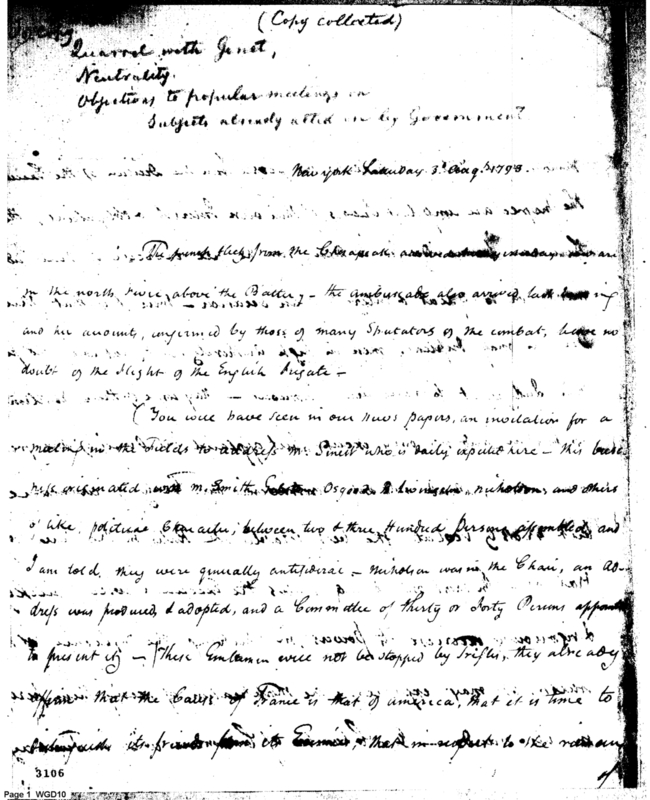 (Copy collected)
Quarrel with Genet,
Neutrality.
Objections to popular meetings on
Subjects already acted on by Government
New York Saturday 3d Augt 1793.
The french fleet from the Chesapeake
in the north river above the Battery - the ambuscade also arrived last
and her accounts, confirmed by those of many Spectators of the combat, leave no
doubt of the flight of the English frigate -
(You will have seen in our news papers, an invitation for a
meeting in the Fields to address Mr. Genett who is daily expected here - this busi
ness originated with Mr. Smith, Osgood, Livingston, Nicholson, and others
of like political Character; between two & three Hundred Persons assembled, and
I am told, they were generally antifederal - Nicholson was in the Chair, an Ad-
dress was produced & adopted, and a Committee of thirty or forty Persons appoint
to present it) - (These Gentlemen will not be stopped by trifles, they already
affirm that the Cause of France is that of America, that it is time to
distinguish its friends from its Enemies, that in respect to the
of
3106
Page 1 WGD10